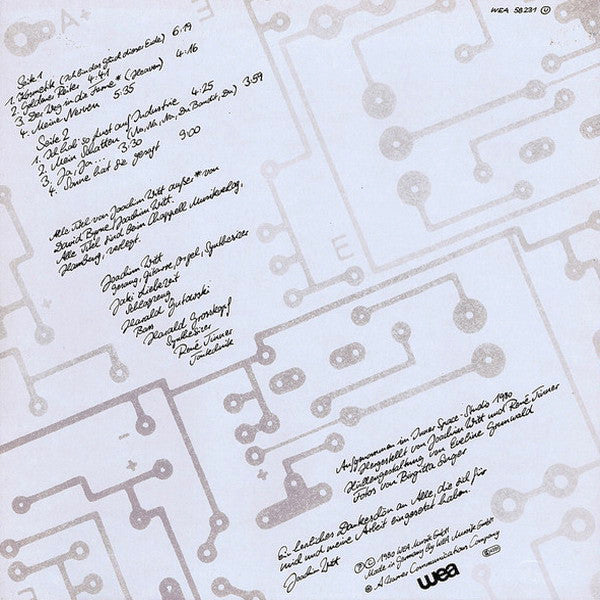 WEA 58231 Ⓤ
A+
E
E
Seite 1
1. Kosmetik (Ich bin das Glück dieser Erde) 6:19
2. Goldener Reiter 4:41
3. Der Weg in die Ferne* (Heaven) 4:16
4. Meine Nerven 5:35
Seite 2
1. Ich hab' so Lust auf Industrie 4:25
2. Mein Schatten (Na, Na, Na, Du Bandit, Du) 3:59
3. Ja, Ja... 3:30
4. Sonne hat sie gesagt 9:00
Alle Titel von Joachim Witt außer * von
David Byrne/Joachim Witt.
Alle Titel sind beim Chappell Musikverlag,
Hamburg, verlegt.
Joachim Witt
Gesang, Gitarre, Orgel, Synthesizer
Jaki Liebezeit
Schlagzeug
Harald Gutowski
Bass
Harald Grosskopf
Synthesizer
René Tinner
Tontechnik
Aufgenommen im Inner Space-Studio 1980
Hergestellt von Joachim Witt und René Tinner
Hüllengestaltung von Eveline Grunwald
Fotos von Birgitta Goger
Ein herzliches Dankeschön an Alle, die sich für
mich und meine Arbeit eingesetzt haben.
Joachim Witt
Ⓟ Ⓒ 1980 WEA Musik GmbH
Made in Germany By WEA Musik GmbH
A Warner Communications Company
wea